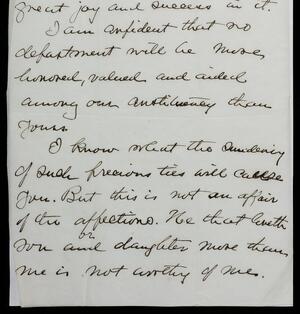 great joy and success in it.
I am confident that no
department will be more
honored, valued and aided
among our constituency than
yours.
I know what the sundering
of such precious ties will cause
you. But this is not an affair
of the affections. He that loveth
son or daughter more than
me is not worthy of me.